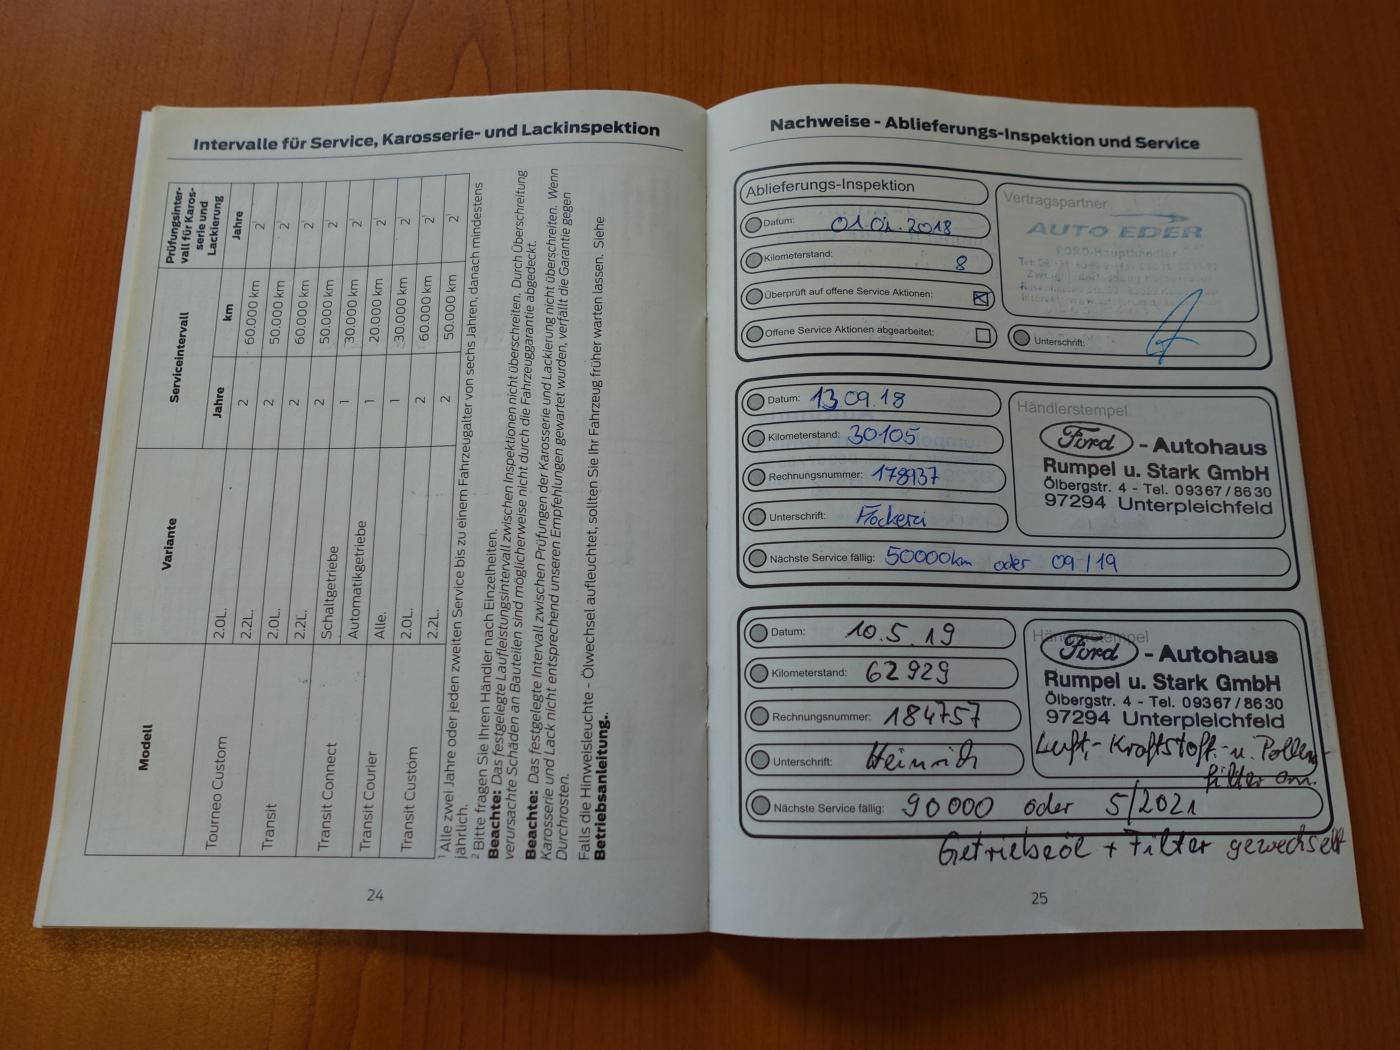 Intervalle für Service, Karosserie- und Lackinspektion
Modell
Variante
Serviceintervall
Prüfungsinter-
vall für Karos-
serie und
Lackierung
Jahre
km
Jahre
Tourneo Custom
2.0L.
2
60.000 km
2¹
2.2L.
2
50.000 km
2¹
Transit
2.0L.
2
60.000 km
2¹
2.2L.
2
50.000 km
2¹
Transit Connect
Schaltgetriebe
1
30.000 km
2¹
Automatikgetriebe
1
20.000 km
2¹
Transit Courier
Alle.
1
30.000 km
2¹
Transit Custom
2.0L.
2
60.000 km
2¹
2.2L.
2
50.000 km
2¹
¹ Alle zwei Jahre oder jeden zweiten Service bis zu einem Fahrzeugalter von sechs Jahren, danach mindestens
jährlich.
² Bitte fragen Sie Ihren Händler nach Einzelheiten.
Beachte: Das festgelegte Laufleistungsintervall zwischen Inspektionen nicht überschreiten. Durch Überschreitung
verursachte Schäden an Bauteilen sind möglicherweise nicht durch die Fahrzeuggarantie abgedeckt.
Beachte: Das festgelegte Intervall zwischen Prüfungen der Karosserie und Lackierung nicht überschreiten. Wenn
Karosserie und Lack nicht entsprechend unseren Empfehlungen gewartet wurden, verfällt die Garantie gegen
Durchrosten.
Falls die Hinweisleuchte - Ölwechsel aufleuchtet, sollten Sie Ihr Fahrzeug früher warten lassen. Siehe
Betriebsanleitung.
24
Nachweise - Ablieferungs-Inspektion und Service
Ablieferungs-Inspektion
Datum: 01.02.2018
Kilometerstand: 8
Überprüft auf offene Service Aktionen:
Offene Service Aktionen abgearbeitet:
Vertragspartner
AUTO EDER
FORD-Haupthändler
Unterschrift:
Datum: 13.09.18
Kilometerstand: 30105
Rechnungsnummer: 178937
Unterschrift:
Nächste Service fällig: 50000km oder 09/19
Händlerstempel
Ford - Autohaus
Rumpel u. Stark GmbH
Ölbergstr. 4 - Tel. 09367/8630
97294 Unterpleichfeld
Datum: 10.5.19
Kilometerstand: 62929
Rechnungsnummer: 184757
Unterschrift: Heinrich
Nächste Service fällig: 90000 oder 5/2021
Händlerstempel
Ford - Autohaus
Rumpel u. Stark GmbH
Ölbergstr. 4 - Tel. 09367/8630
97294 Unterpleichfeld
Luft,- Kraftstoff- u. Pollen-
filter ern.
Getriebeöl + Filter gewechselt
25